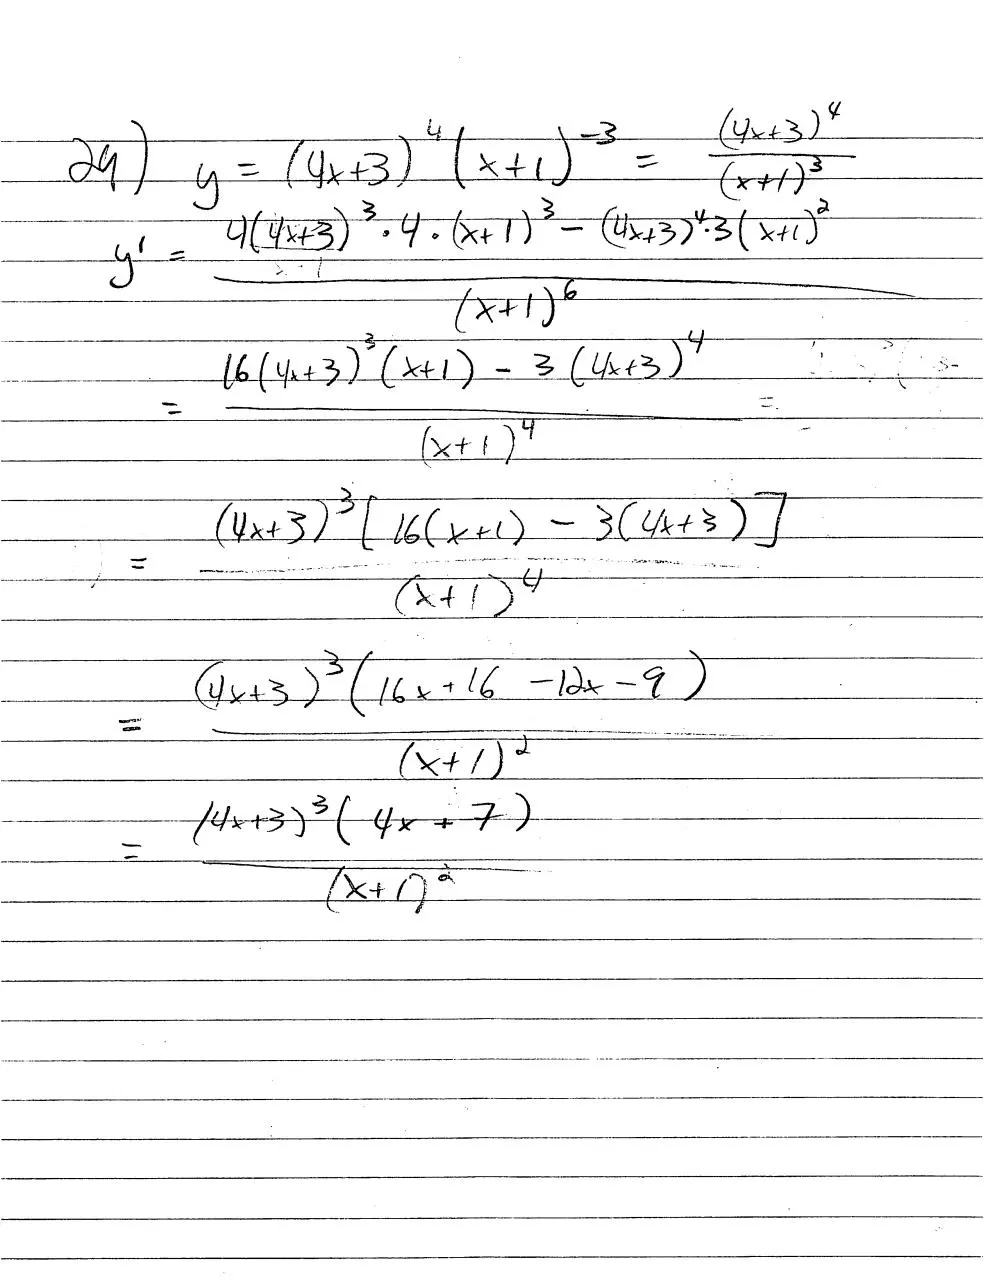 29) y = (4x+3)^4 (x+1)^-3 = (4x+3)^4 / (x+1)^3
y' = 4(4x+3)^3 · 4 · (x+1)^3 - (4x+3)^4 · 3(x+1)^2 / (x+1)^6
= 16(4x+3)^3 (x+1) - 3(4x+3)^4 / (x+1)^4 =
= (4x+3)^3 [16(x+1) - 3(4x+3)] / (x+1)^4
= (4x+3)^3 (16x+16 - 12x - 9) / (x+1)^2
= (4x+3)^3 (4x+7) / (x+1)^2